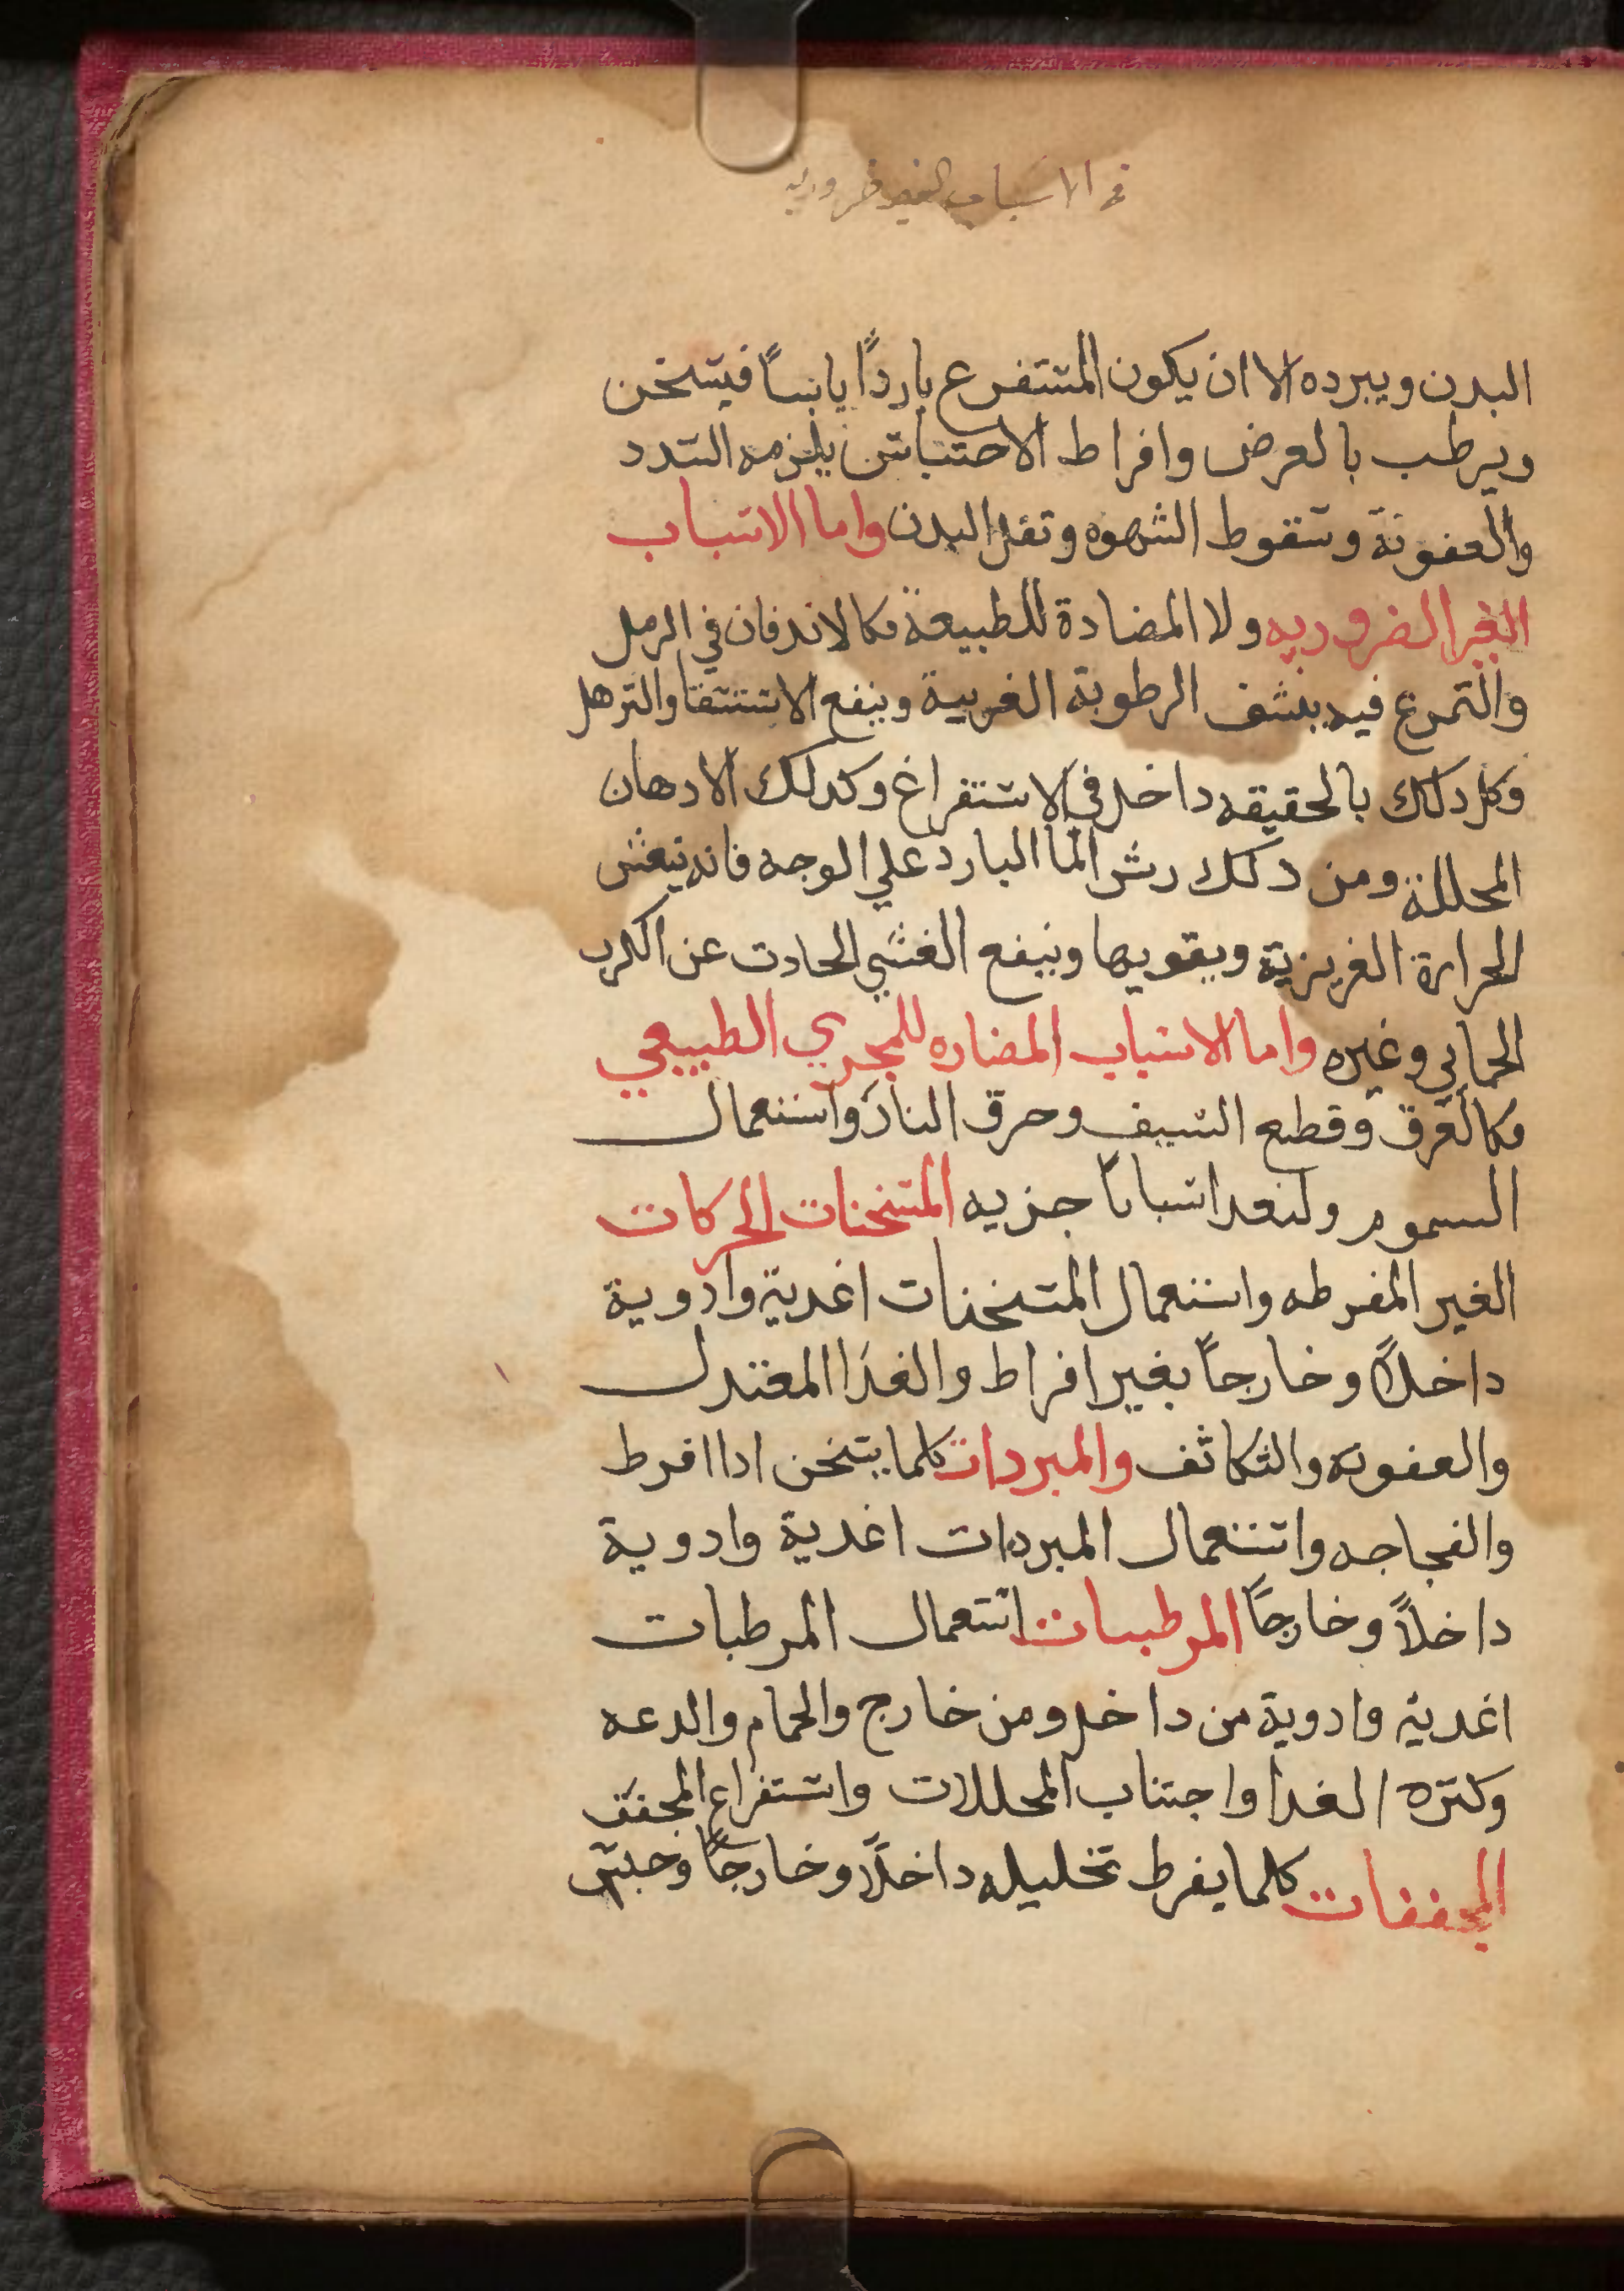 في الاسباب الغير ضروريه
البدن ويبرده الا ان يكون المستفرغ باردًا يابسًا فيسخن
ويرطب بالعرض وافراط الاحتباس يلزمه السدد
والعفونة وسقوط الشهوه وثقل البدن واما الاسباب
الغير الضروريه ولا المضادة للطبيعة فكالاندفان في الرمل
والتمرغ فيه ينشف الرطوبة الغريبة وينفع الاستسقا والترهل
وكل دلك بالحقيقه داخل في الاستفراغ وكدلك الادهان
المحللة ومن دلك رش الما البارد علي الوجه فانه ينعش
الحرارة الغريزية ويقويها وينفع الغشي الحادث عن الكرب
الحمايي وغيره واما الاسباب المضاده للمجري الطبيعي
فكالغرق وقطع السيف وحرق النار واستعمال
السموم ولنعد اسبابا جزيه المسخنات الحركات
الغير المفرطه واستعمال المسخنات اغدية وادوية
داخلًا وخارجًا بغير افراط والغدا المعتدل
والعفونه والتكاثف والمبردات كلما يسخن ادا افرط
والفجاجه واستعمال المبردات اغدية وادوية
داخلاً وخارجًا المرطبات استعمال المرطبات
اغدية وادوية من داخل ومن خارج والحمام والدعه
وكثره الغدا واجتناب المحللات واستفراغ المجفف
المجففات كلما يفرط تحليله داخلًا وخارجًا وحبس